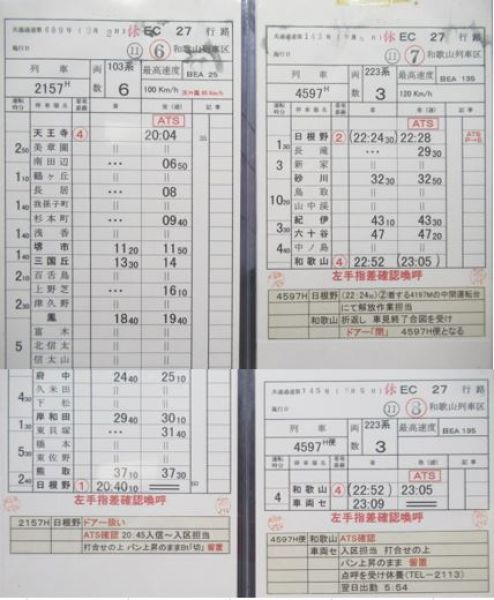 休 EC 27 行路
施行日 11 6 和歌山列車区
列車 両数 103系 最高速度 BEA 25
2157H 6 100 Km/h
ATS
天王寺 4 20:04 35
2 50 美章園 || ||
南田辺 … 06 50
1 10 鶴ヶ丘 || ||
長居 … 08
1 40 我孫子町 || ||
杉本町 … 09 40
1 40 浅香 || ||
堺市 11 20 11 50
1 40 三国丘 13 30 14
2 10 百舌鳥 || ||
上野芝 … 16 10
2 30 津久野 || ||
鳳 18 40 19 40
富木 || ||
5 北信太 || ||
信太山 || ||
府中 24 40 25 10
久米田 || ||
4 30 下松 || ||
岸和田 29 40 30 10
1 30 東貝塚 … 31 40
橋本 || ||
5 30 東佐野 || ||
熊取 37 10 37 30
2 40 日根野 1 20:40 10 ═══ 60
左手指差確認喚呼
2157H 日根野 ドアー扱い
ATS確認 20:45入信～入区担当
打合せの上 パン上昇のままBt「切」 留置
休 EC 27 行路
施行日 11 7 和歌山列車区
列車 両数 223系 最高速度 BEA 195
4597H 3 120 Km/h
運転時分 停車場名 着発線路 着 発(通) 記事
ATS
日根野 2 (22:24 30) 22:28 ATS P→S
1 30 長滝 … 29 30
3 新家 || ||
砂川 32 30 32 50
10 20 鳥取 || ||
山中渓 || ||
紀伊 43 10 43 30
3 30 六十谷 47 47 20
4 40 中ノ島 || ||
和歌山 4 22:52 (23:05)
左手指差確認喚呼
4597H 日根野 (22:24 30)②着する4197Mの中間運転台
にて解放作業担当
和歌山 折返し 車見終了合図を受け
ドアー「閉」 4597H便となる
休 EC 27 行路
施行日 11 8 和歌山列車区
列車 両数 223系 最高速度 BEA 195
4597H便 3
運転時分 停車場名 着発線路 着 発(通) 記事
ATS
4 和歌山 4 (22:52) 23:05
車両セ 23:09 ═══
左手指差確認喚呼
4597H便 和歌山 ATS確認
車両セ 入区担当 打合せの上
パン上昇のまま 留置
点呼を受け休養(TEL-2113)
翌日出勤 5:54